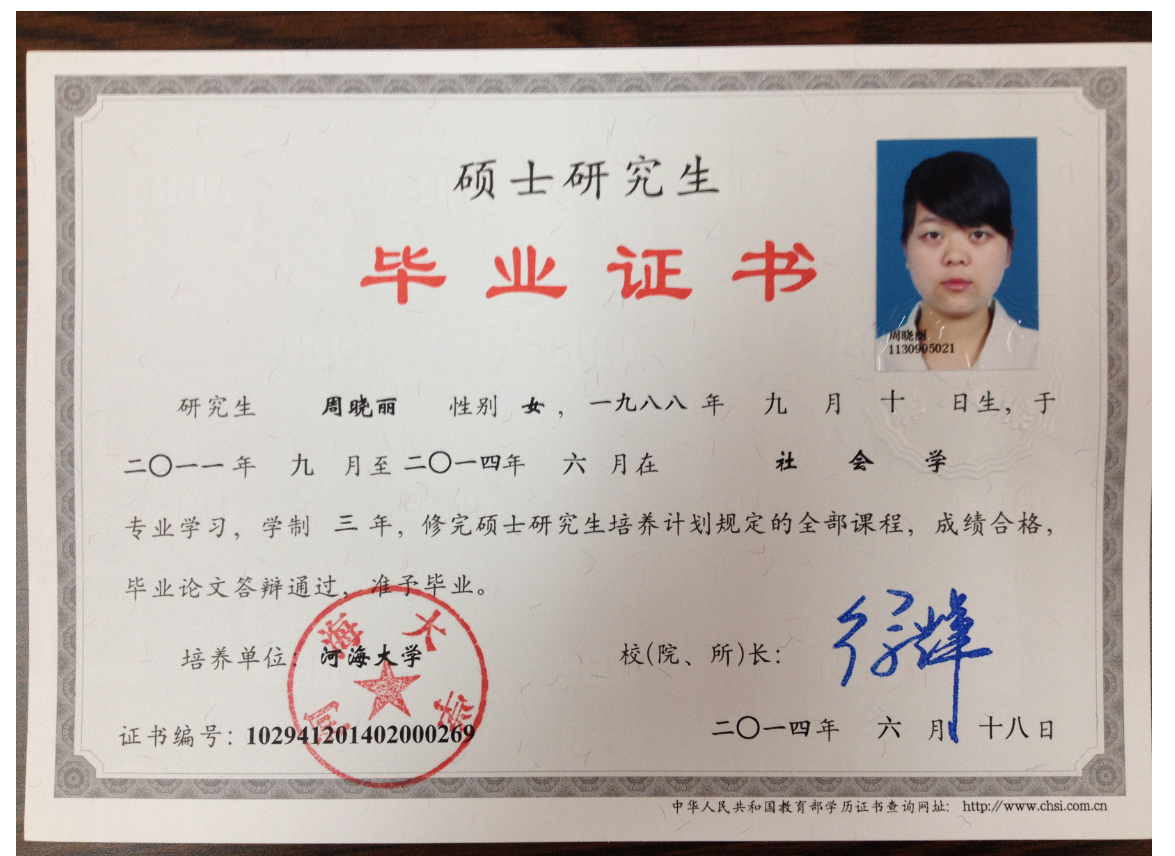 硕士研究生
毕业证书
周晓丽
1130905021
研究生 周晓丽 性别 女，一九八八 年 九 月 十 日生，于
二〇一一年 九 月至 二〇一四年 六 月在 社会学
专业学习，学制 三 年，修完硕士研究生培养计划规定的全部课程，成绩合格，
毕业论文答辩通过，准予毕业。
培养单位：河海大学
河海大学
校(院、所)长：
证书编号：102941201402000269
二〇一四年 六 月 十八日
中华人民共和国教育部学历证书查询网址：http://www.chsi.com.cn